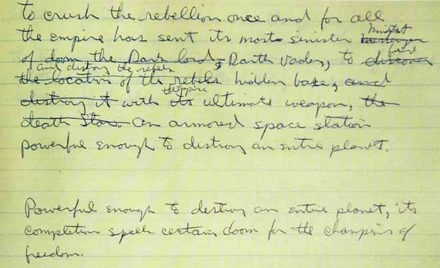 to crush the rebellion once and for all
the empire has sent its most sinister
of doom the Dark lord, Darth Vader, to discover find
and destroy the rebels
the location of the rebels hidden base, and
destroy it with its ultimate weapon, the
death Star an armored space station
powerful enough to destroy an entire planet.
Powerful enough to destroy an entire planet, its
completion spells certain doom for the champions of
freedom.